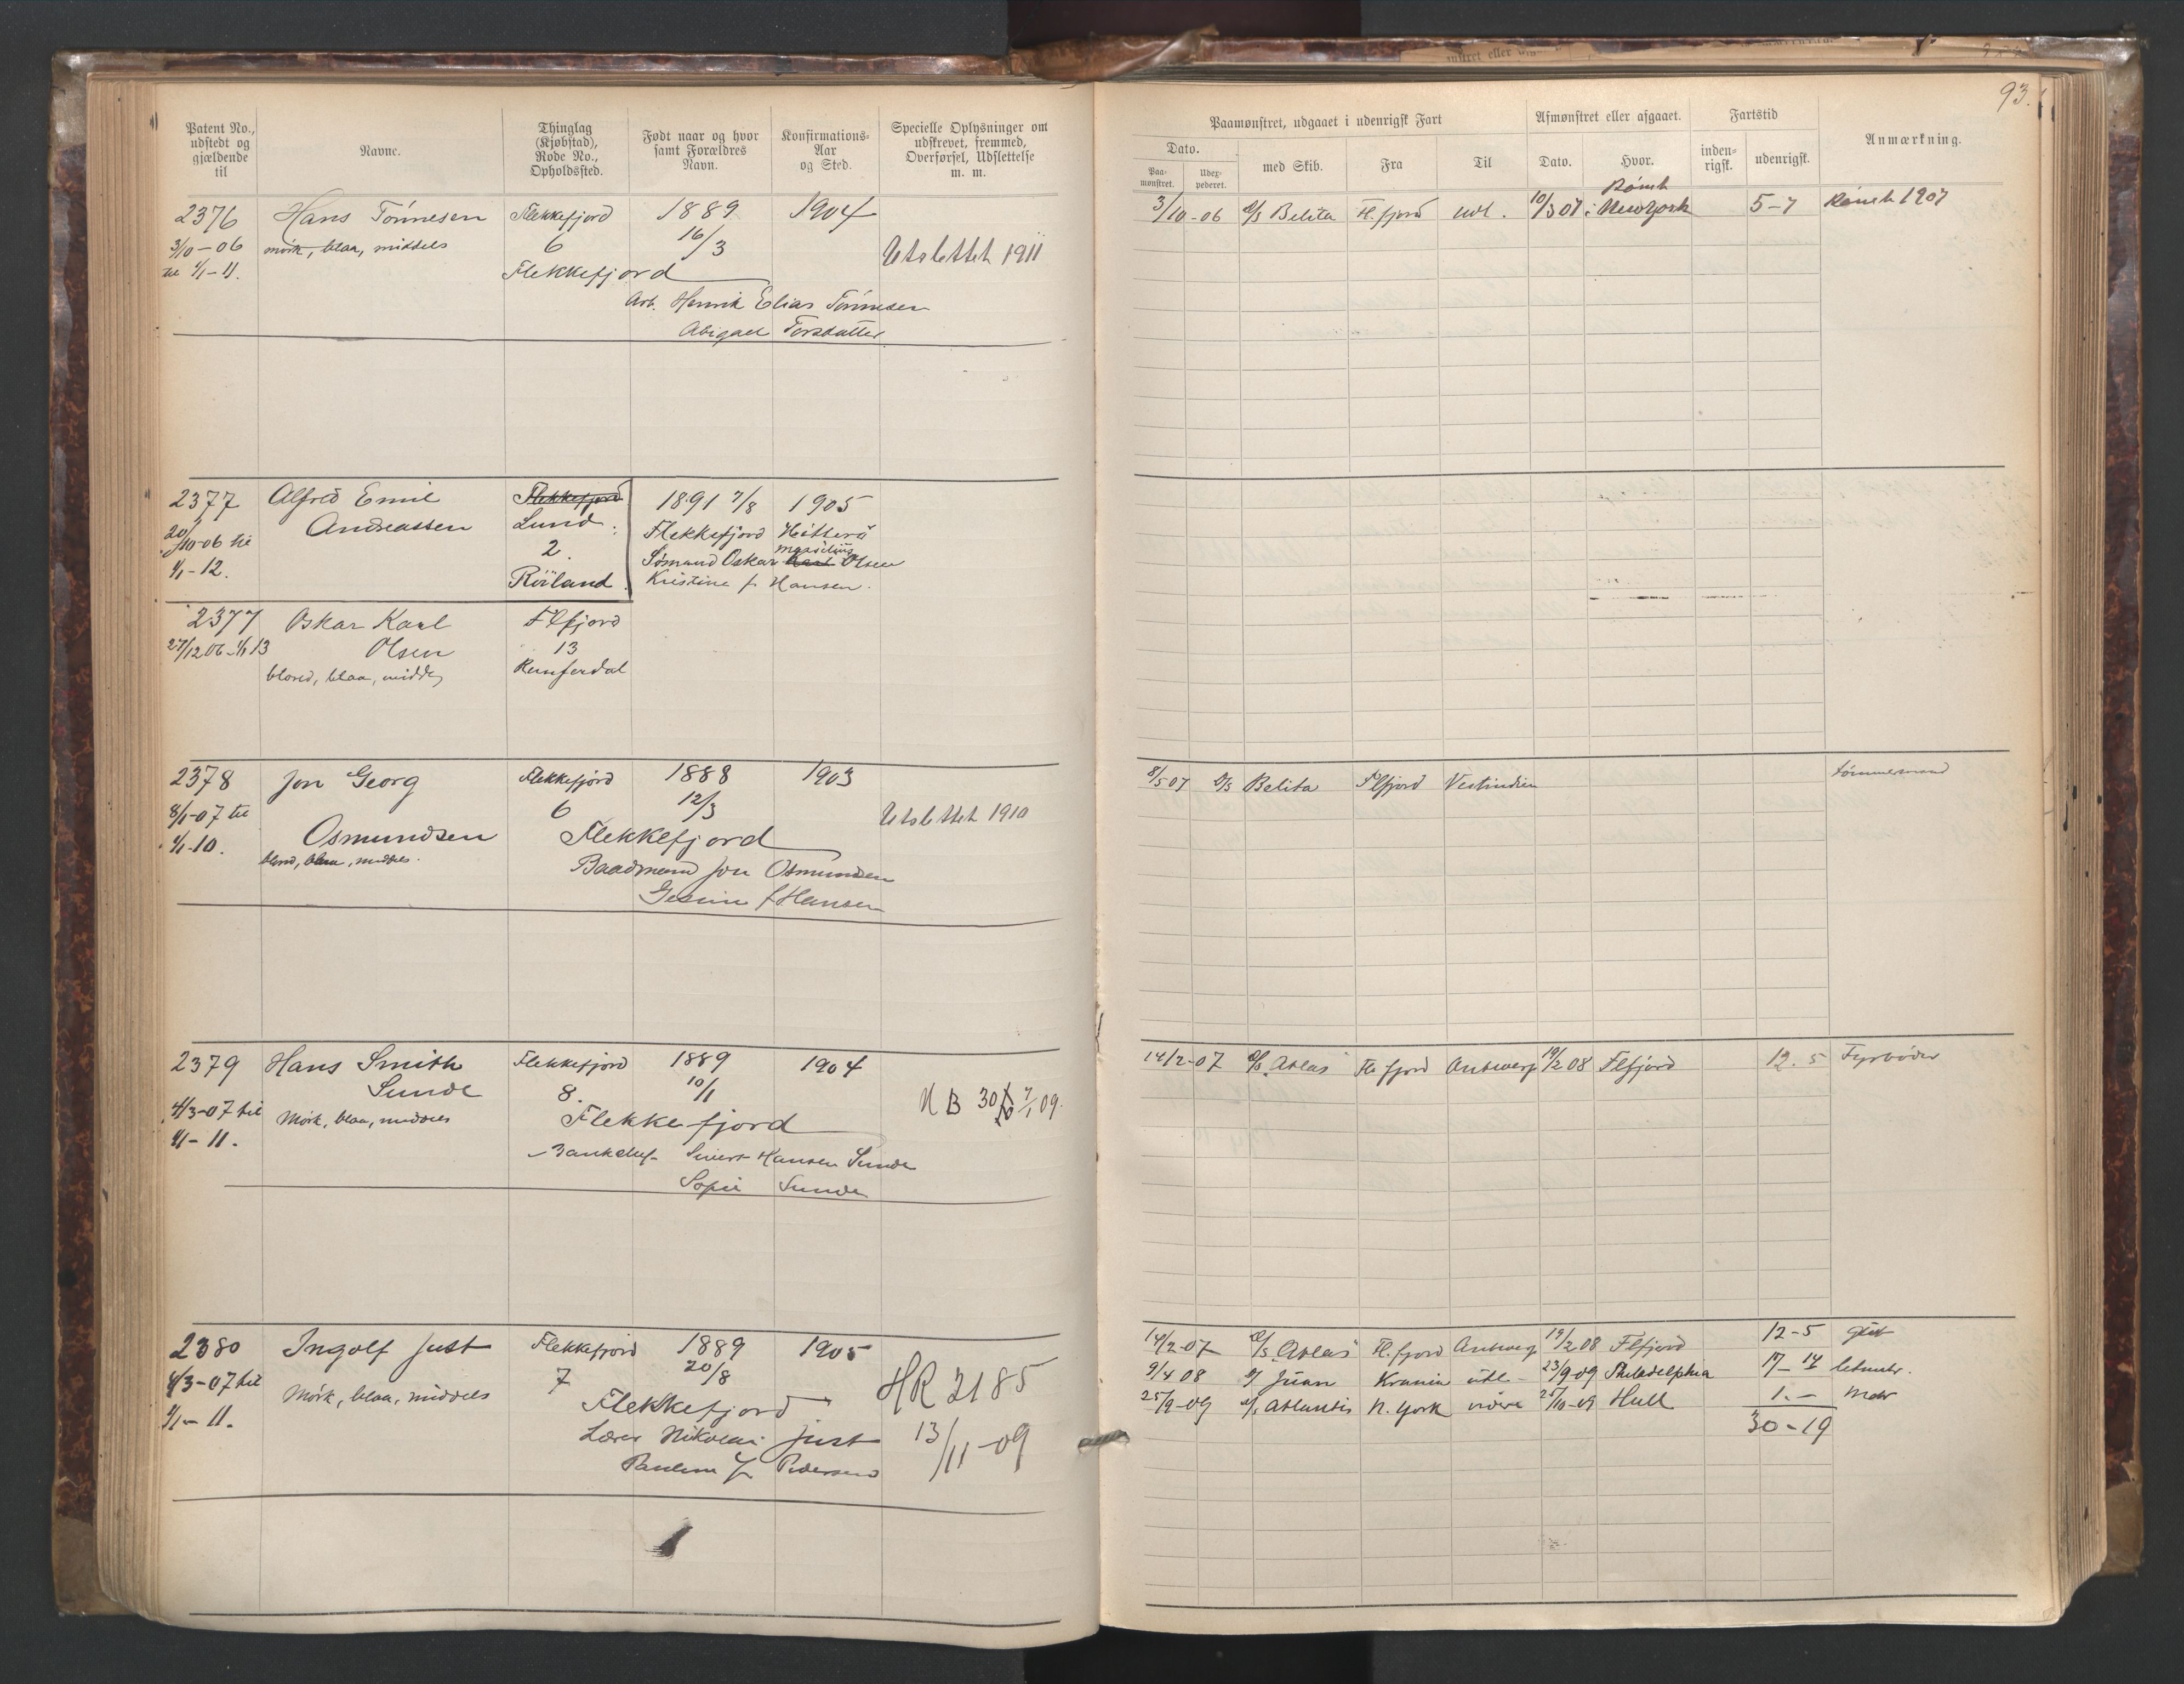 93.
Patent No., udstedt og gjældende til
Navne.
Thinglag (Kjøbstad), Rode No., Opholdssted.
Født naar og hvor samt Forældres Navn.
Konfirmations-Aar og Sted.
Specielle Oplysninger om udskrevet, fremmed, Overførsel, Udslettelse m. m.
Paamønstret, udgaaet i udenrigsk Fart
Afmønstret eller afgaaet.
Fartstid
Anmærkning.
Dato.
Paa-mønstret.
Udex-pederet.
med Skib.
Fra
Til
Dato.
Hvor.
inden-rigsk.
udenrigsk.
2376 Hans Tönnesen Flekkefjord 1889 1904
3/10-06 mörk, blaa, middels 6 16/3 Utslettet 1911
til 1/1-11. Flekkefjord
Arb. Henrik Elias Tönnesen
Abigael Torsdatter
3/10-06 D/S Belita Fl.fjord udl. 10/3 07 Römt i New York 5-7 Römt 1907
2377 Alfred Emil Flekkefjord 1891 7/8 1905
20/10-06 til Andreassen Lund Flekkefjord Hitterö
1/1-12. 2. Sömand Oskar Marsilius Olsen
Röiland Kristine f. Hansen.
2377 Oskar Karl Flfjord
27/12 06-1/1 13 Olsen 13
blond, blaa, midd
2378 Jon Georg Flekkefjord 1888 1903
8/1-07 til 6 12/3 Utslettet 1910
1/1-10. Osmundsen Flekkefjord
blond, blaa, middels. Baadsmand Jon Osmundsen
f Hansen
8/5 07 D/S Belita Flfjord Vestindien tömmermand
2379 Hans Smith Flekkefjord 1889 1904
Sunde 8. 10/1
4/3-07 til Mörk, blaa, middels Flekkefjord N B 30 7/1 09.
1/1-11.
Sivert Hansen Sunde
Sofie Sunde
14/2-07 D/S Atlas Fl.fjord Antwerp 19/2 08 Flfjord 12.5 Fyrböder
2380 Ingolf Just Flekkefjord 1889 1905
4/3-07 til Mörk, blaa, middels 7 20/8 HR 2185
1/1-11. Flekkefjord
Lærer Nikolai Just 13/11-09
Pauline f. Pedersen
14/2-07 D/S Atlas Fl.fjord Antwerp 19/2 08 Flfjord 12-5
9/4 08 Juan utl- 23/9-09 Philadelphia 17-14 letmatr.
25/9-09 Atlantis N. York videre 25/10-09 Hull 1.- Matr
30-19